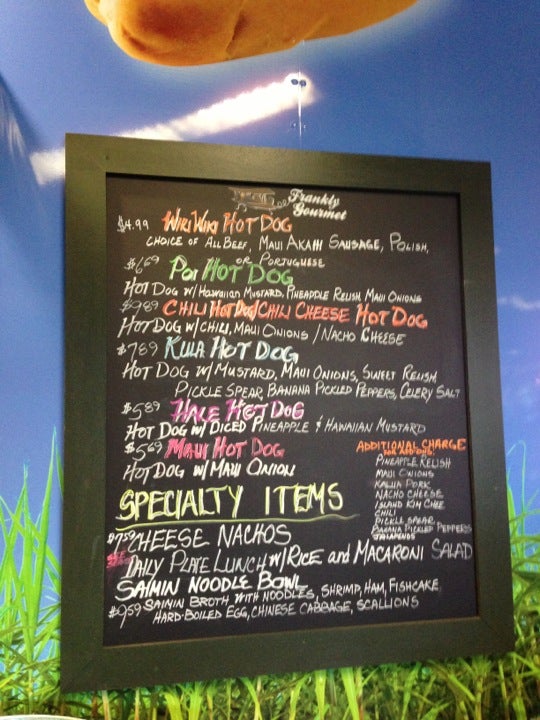 Frankly
Gourmet
$4.99 WIKI WIKI HOT DOG
CHOICE OF ALL BEEF, MAUI SAUSAGE, POLISH,
OR PORTUGUESE
$6.69 POI HOT DOG
HOT DOG W/ HAWAIIAN MUSTARD, PINEAPPLE RELISH, MAUI ONIONS
CHILI HOT DOG/CHILI CHEESE HOT DOG
HOT DOG W/ CHILI, MAUI ONIONS / NACHO CHEESE
$7.89 KULA HOT DOG
HOT DOG W/ MUSTARD, MAUI ONIONS, SWEET RELISH
PICKLE SPEAR, BANANA PICKLED PEPPERS, CELERY SALT
$5.89 HOT DOG
HOT DOG W/ DICED PINEAPPLE & HAWAIIAN MUSTARD
$5.69 MAUI HOT DOG
HOT DOG W/ MAUI ONION
ADDITIONAL CHARGE
PINEAPPLE RELISH
MAUI ONIONS
KALUA PORK
NACHO CHEESE
ISLAND KIM CHEE
CHILI
PICKLE SPEAR
BANANA PICKLED PEPPERS
JALAPENOS
SPECIALTY ITEMS
$7.59 CHEESE NACHOS
DAILY PLATE LUNCH W/ RICE AND MACARONI SALAD
SAIMIN NOODLE BOWL
$9.59 SAIMIN BROTH WITH NOODLES, SHRIMP, HAM, FISHCAKE
HARD-BOILED EGG, CHINESE CABBAGE, SCALLIONS